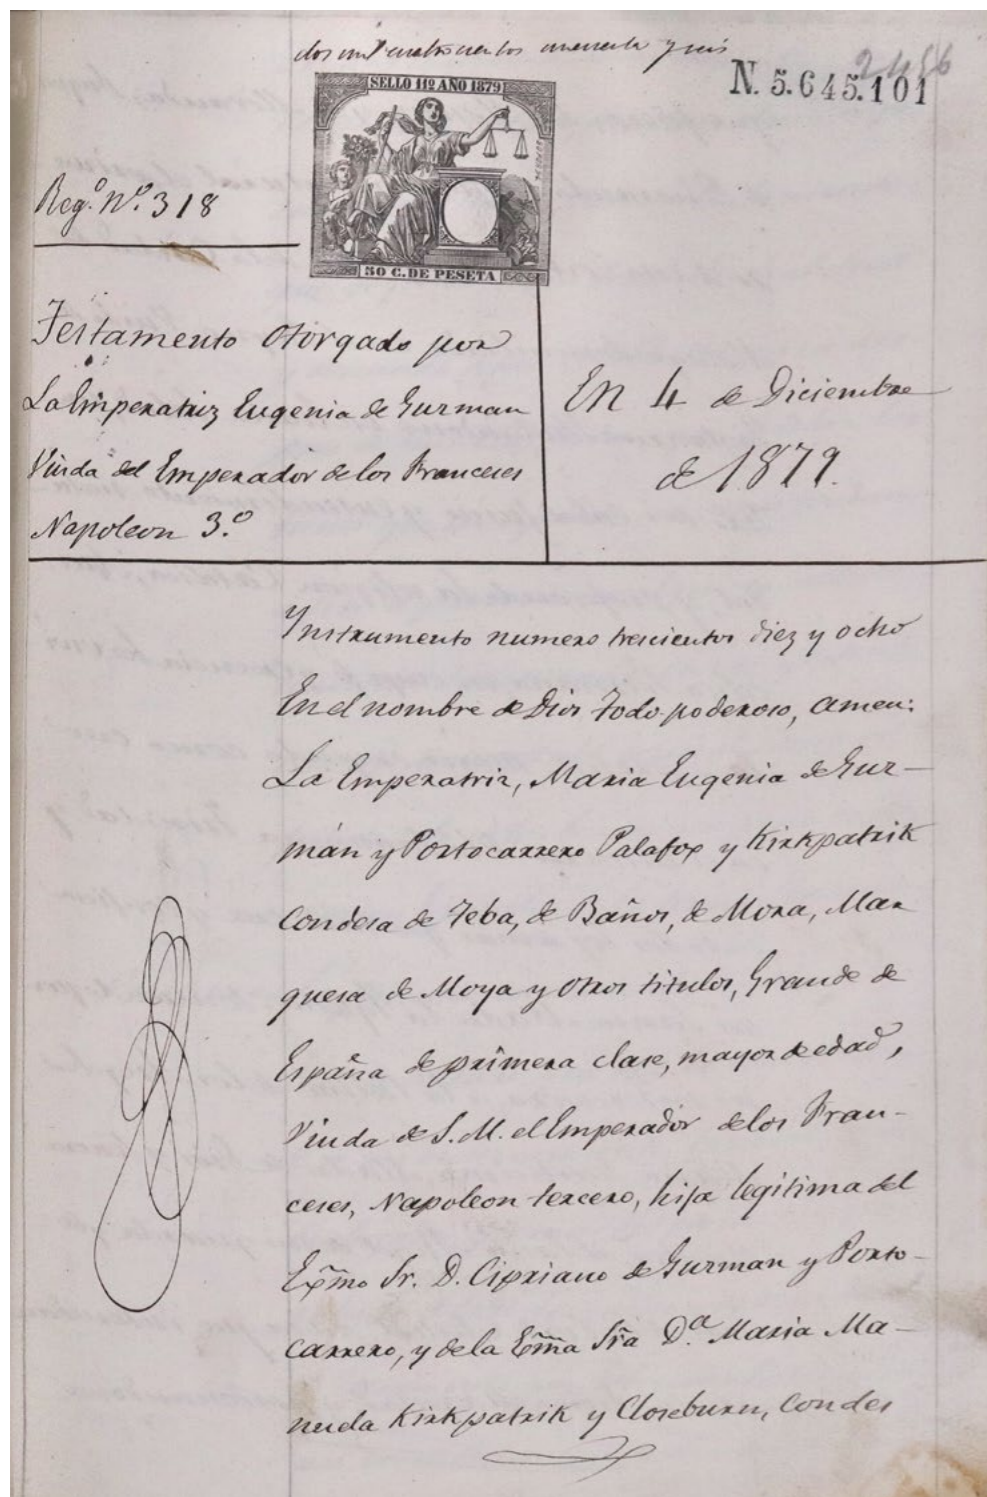 dos mil cuatrocientos cincuenta y seis
2456
N. 5.645.101
SELLO 11º AÑO 1879
50 C. DE PESETA
Reg.º Nº. 318
Testamento Otorgado por
La Emperatriz Eugenia de Guzman
Viuda del Emperador de los Franceses
Napoleon 3.º
En 4 de Diciembre
de 1879.
Instrumento numero trescientos diez y ocho
En el nombre de Dios Todo poderoso, amen:
La Emperatriz, Maria Eugenia de Guz-
mán y Portocarrero Palafox y Kirkpatrik
Condesa de Teba, de Baños, de Mora, Mar
quesa de Moya y otros titulos, Grande de
España de primera clase, mayor de edad,
Viuda de S. M. el Emperador de los Fran-
ceses, Napoleon tercero, hija legitima del
Exmo Sr. D. Cipriano de Guzman y Porto-
carrero, y de la Exma Sra D.ª Maria Ma-
nuela Kirkpatrik y Closeburn, Condes